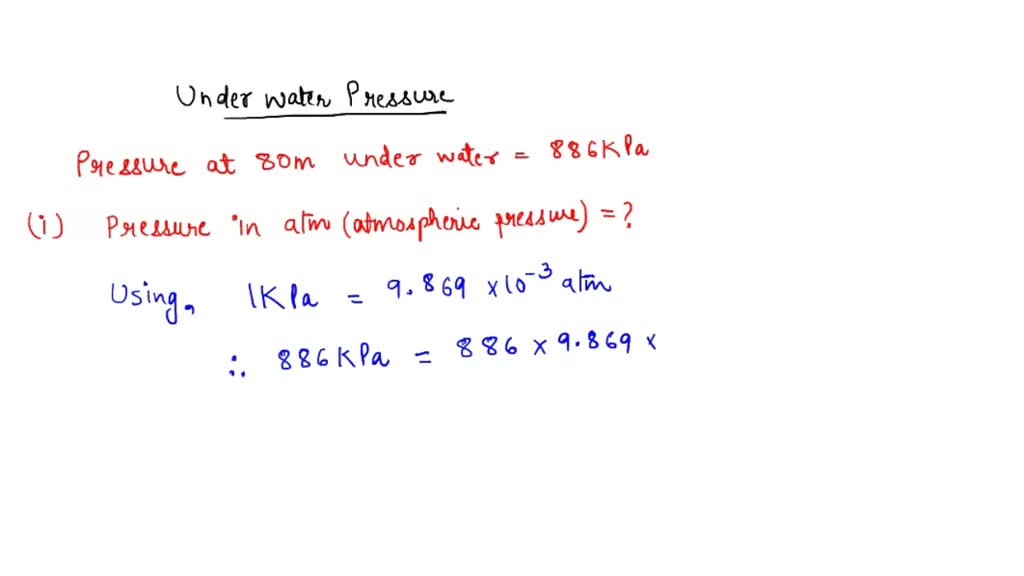 Under water Pressure
Pressure at 80m under water = 886KPa
(i) Pressure in atm (atmospheric pressure) = ?
Using, 1KPa = 9.869 ×10⁻³ atm
∴ 886KPa = 886 × 9.869 ×